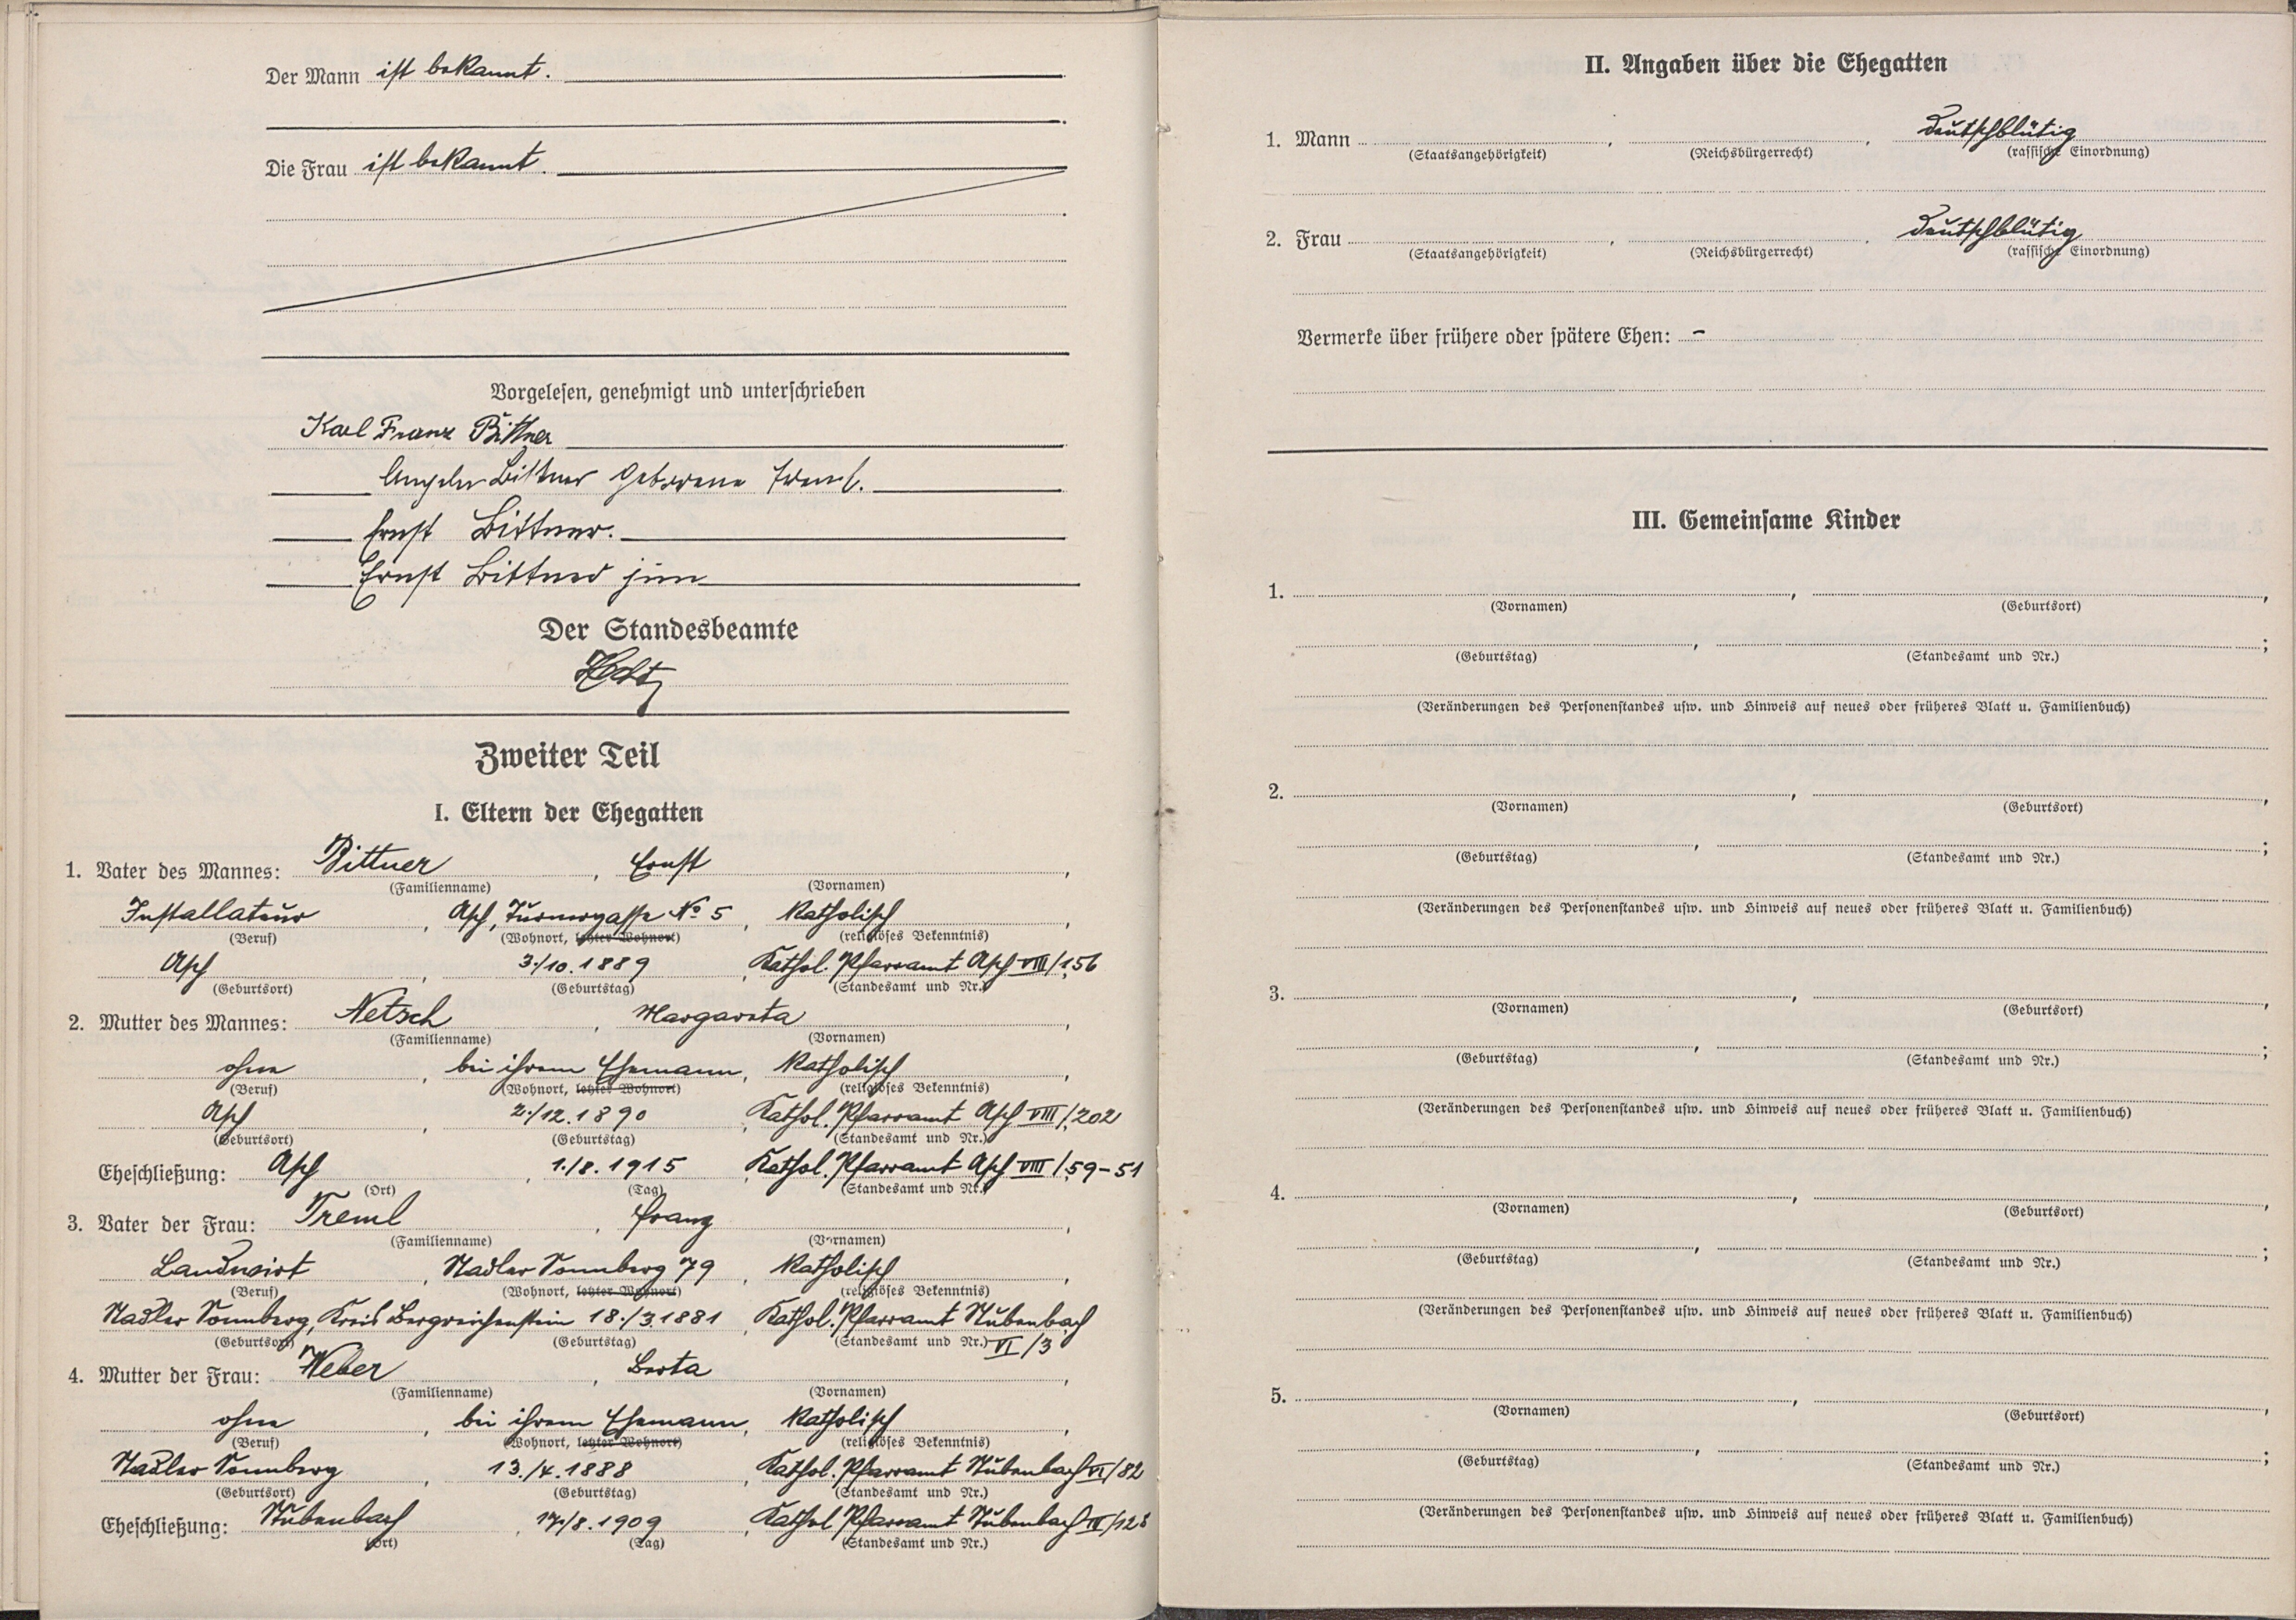 Der Mann ist bekannt.
Die Frau ist bekannt.
Vorgelesen, genehmigt und unterschrieben
Karl Franz Bittner
Angela Bittner geborene Treml.
Ernst Bittner.
Ernst Bittner jun
Der Standesbeamte
Zweiter Teil
I. Eltern der Ehegatten
1. Vater des Mannes: Bittner, Ernst,
(Familienname) (Vornamen)
Installateur, Asch, Turnergasse No 5, katholisch,
(Beruf) (Wohnort, letzter Wohnort) (religiöses Bekenntnis)
Asch, 3./10.1889, Kathol. Pfarramt Asch VIII/156
(Geburtsort) (Geburtstag) (Standesamt und Nr.)
2. Mutter des Mannes: Netsch, Margareta,
(Familienname) (Vornamen)
ohne, bei ihrem Ehemann, katholisch,
(Beruf) (Wohnort, letzter Wohnort) (religiöses Bekenntnis)
Asch, 2./12.1890, Kathol. Pfarramt Asch VIII/202
(Geburtsort) (Geburtstag) (Standesamt und Nr.)
Eheschließung: Asch, 1./8.1915, Kathol. Pfarramt Asch VIII/59-51
(Ort) (Tag) (Standesamt und Nr.)
3. Vater der Frau: Treml, Franz,
(Familienname) (Vornamen)
Landwirt, Stadler Sonnberg 79, katholisch,
(Beruf) (Wohnort, letzter Wohnort) (religiöses Bekenntnis)
Stadler Sonnberg, Kreis Bergreichenstein 18./3.1881, Kathol. Pfarramt Stubenbach
(Geburtsort) (Geburtstag) (Standesamt und Nr.) VI/3
4. Mutter der Frau: Weber, Berta,
(Familienname) (Vornamen)
ohne, bei ihrem Ehemann, katholisch,
(Beruf) (Wohnort, letzter Wohnort) (religiöses Bekenntnis)
Stadler Sonnberg, 13./4.1888, Kathol. Pfarramt Stubenbach VI/82
(Geburtsort) (Geburtstag) (Standesamt und Nr.)
Eheschließung: Stubenbach, 17./8.1909, Kathol. Pfarramt Stubenbach
(Ort) (Tag) (Standesamt und Nr.)
II. Angaben über die Ehegatten
1. Mann, , deutschblütig
(Staatsangehörigkeit) (Reichsbürgerrecht) (rassische Einordnung)
2. Frau, , deutschblütig
(Staatsangehörigkeit) (Reichsbürgerrecht) (rassische Einordnung)
Vermerke über frühere oder spätere Ehen: -
III. Gemeinsame Kinder
1. , ,
(Vornamen) (Geburtsort)
, ;
(Geburtstag) (Standesamt und Nr.)
(Veränderungen des Personenstandes usw. und Hinweis auf neues oder früheres Blatt u. Familienbuch)
2. , ,
(Vornamen) (Geburtsort)
, ;
(Geburtstag) (Standesamt und Nr.)
(Veränderungen des Personenstandes usw. und Hinweis auf neues oder früheres Blatt u. Familienbuch)
3. , ,
(Vornamen) (Geburtsort)
, ;
(Geburtstag) (Standesamt und Nr.)
(Veränderungen des Personenstandes usw. und Hinweis auf neues oder früheres Blatt u. Familienbuch)
4. , ,
(Vornamen) (Geburtsort)
, ;
(Geburtstag) (Standesamt und Nr.)
(Veränderungen des Personenstandes usw. und Hinweis auf neues oder früheres Blatt u. Familienbuch)
5. , ,
(Vornamen) (Geburtsort)
, ;
(Geburtstag) (Standesamt und Nr.)
(Veränderungen des Personenstandes usw. und Hinweis auf neues oder früheres Blatt u. Familienbuch)